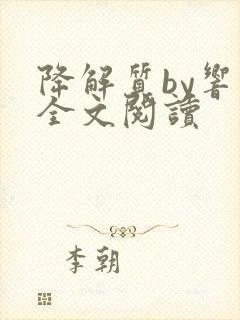 降解質by響
全文閱讀
李朝